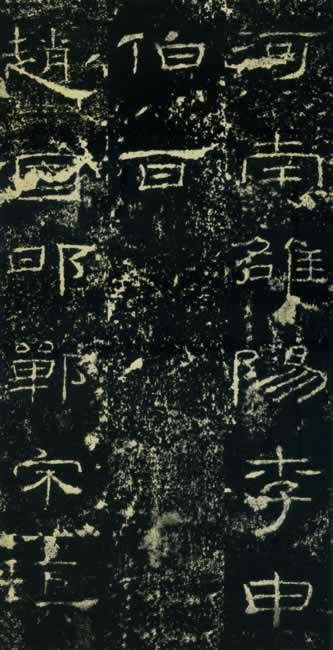 河南雒陽李申
伯百
趙國邯鄲宋